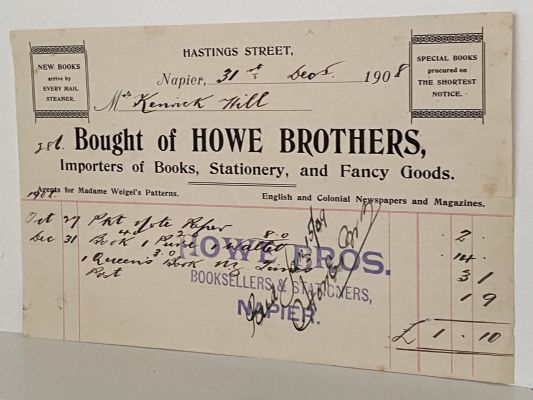 HASTINGS STREET,
NEW BOOKS
arrive by
EVERY MAIL
STEAMER.
SPECIAL BOOKS
procured on
THE SHORTEST
NOTICE.
Napier, 31st Decr 1908
Mrs Kenrick Hill
286. Bought of HOWE BROTHERS,
Importers of Books, Stationery, and Fancy Goods.
Agents for Madame Weigel's Patterns. English and Colonial Newspapers and Magazines.
1908.
Oct 27 Pkt Note Paper 2
4.0 2.6 8.0
Dec 31 Book 1 Purse 1 Wallet 14
3.0
1 Queen's Book NZ Times 3 1
Post 1 9
£1.10
HOWE BROS.
BOOKSELLERS & STATIONERS,
NAPIER.
Paid